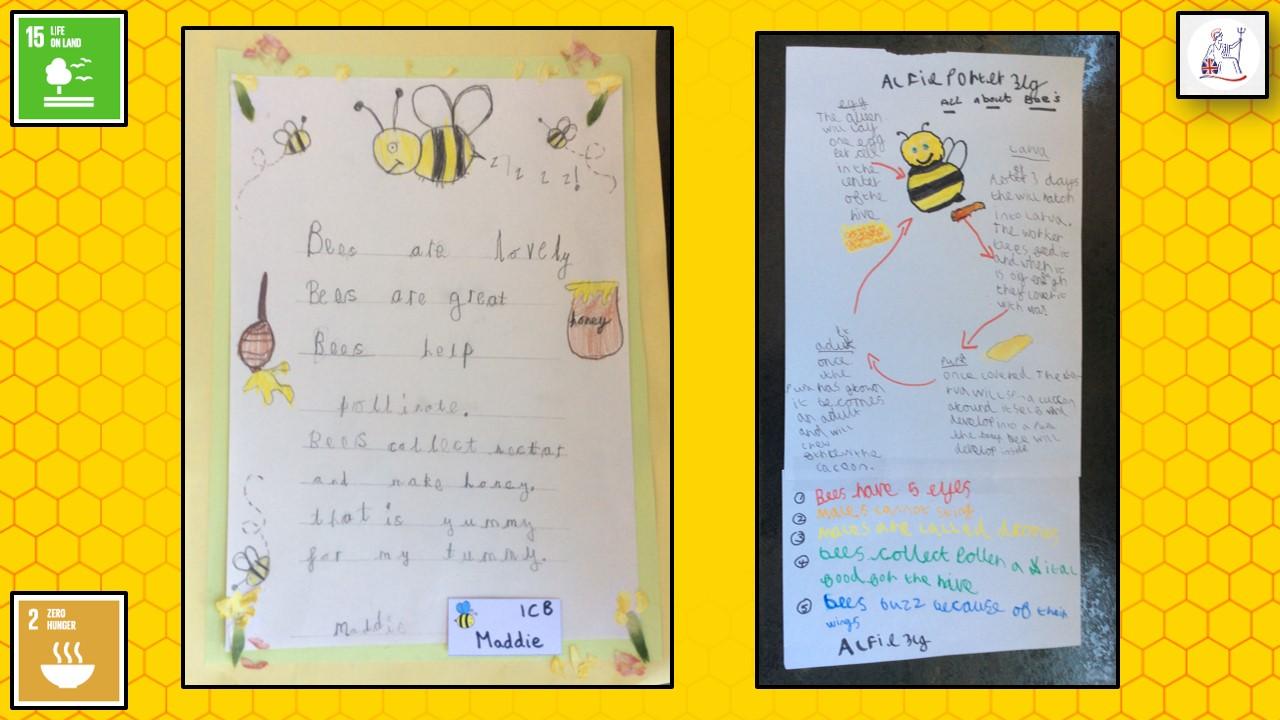 15 LIFE
ON LAND
2 ZERO
HUNGER
Bees are lovely
Bees are great
Bees help
pollinate.
Bees collect nectar
and make honey.
that is yummy
for my tummy.
Maddie
honey
1CB
Maddie
Alfie Porter 3lg
All about Bee's
egg
The queen
will lay
one egg
in the
center
of the
hive
Larva
3 days
the will hatch
into Larva.
The worker
bees feed it
and when it
is big enough
they cover it
with wax
once covered The
rva will spin a
around itself and
develop into a
the bee will
develop inside
adult
once
the
has grown
it becomes
an adult
and will
chew
the
cacoon.
① Bees have 5 eyes
② males cannot sting
③ males are called drones
④ bees collect Pollen a vital
food for the hive
⑤ bees buzz because of their
wings
Alfie 3lg